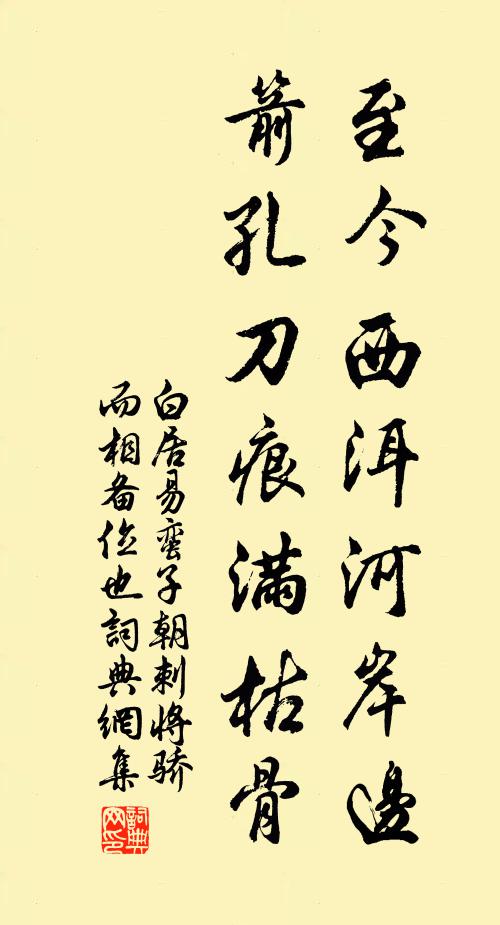 至今西洱河岸邊
箭孔刀痕滿枯骨
白居易蛮子朝刺將骄
而相备位也詞典網集
詞典
网印